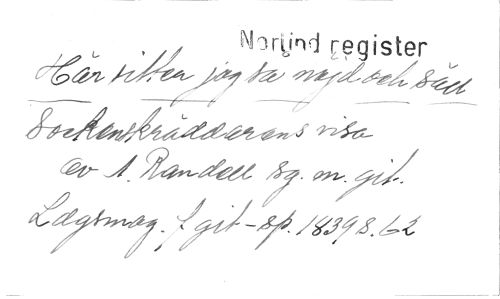 Norlind register
Här sitter jag så nöjd och säll
Sockenskräddarens visa
av A. Randell sg. m. git.
Lægsmag. f git-sp. 1839 s. 62